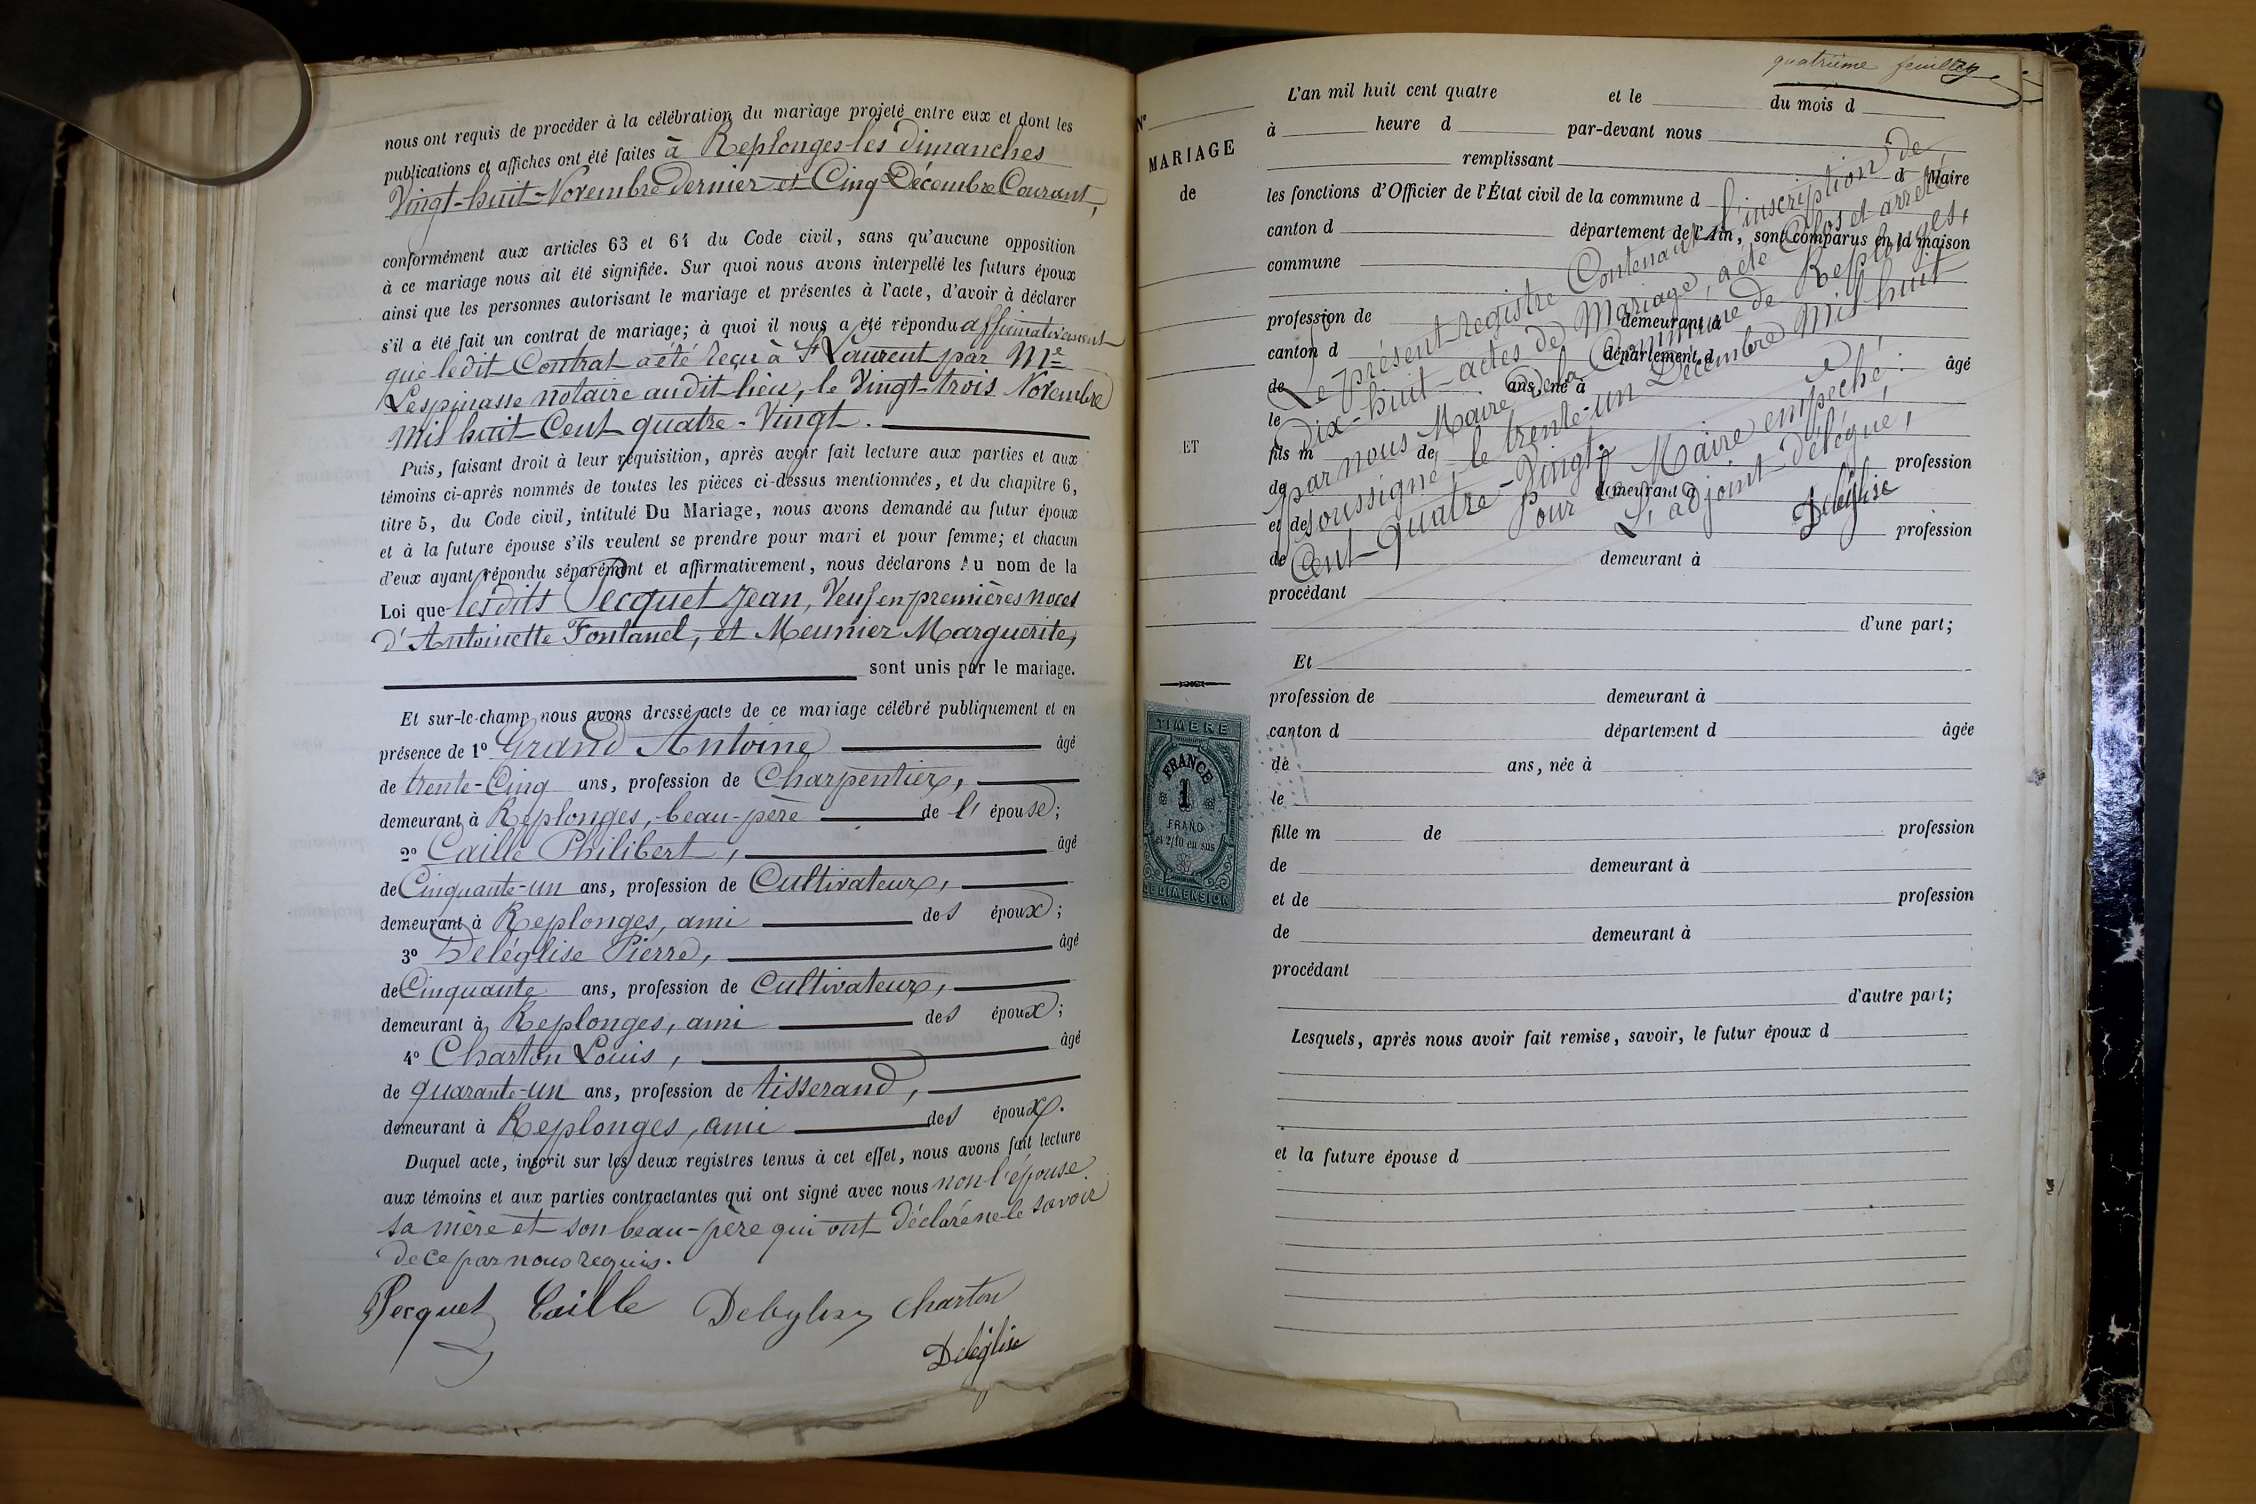 nous ont requis de procéder à la célébration du mariage projeté entre eux et dont les
publications et affiches ont été faites à Replonges les dimanches
Vingt-huit-Novembre dernier et Cinq Décembre Courant,
conformément aux articles 63 et 64 du Code civil, sans qu'aucune opposition
à ce mariage nous ait été signifiée. Sur quoi nous avons interpellé les futurs époux
ainsi que les personnes autorisant le mariage et présentes à l'acte, d'avoir à déclarer
s'il a été fait un contrat de mariage; à quoi il nous a été répondu affirmativement
que ledit Contrat a été reçu à St Laurent par Me
Lespinasse notaire audit lieu, le Vingt-trois Novembre
mil huit Cent quatre-Vingt.
Puis, faisant droit à leur réquisition, après avoir fait lecture aux parties et aux
témoins ci-après nommés de toutes les pièces ci-dessus mentionnées, et du chapitre 6,
titre 5, du Code civil, intitulé Du Mariage, nous avons demandé au futur époux
et à la future épouse s'ils veulent se prendre pour mari et pour femme; et chacun
d'eux ayant répondu séparément et affirmativement, nous déclarons Au nom de la
Loi que lesdits Pecquet Jean, Veuf en premières noces
d'Antoinette Fontanel, et Meunier Marguerite,
sont unis par le mariage.
Et sur-le-champ nous avons dressé acte de ce mariage célébré publiquement et en
présence de 1º Grand Antoine âgé
de trente-Cinq ans, profession de Charpentier,
demeurant à Replonges, beau-père de l' épouse;
2º Caille Philibert, âgé
de Cinquante-un ans, profession de Cultivateur,
demeurant à Replonges, ami des époux;
3º Deléglise Pierre, âgé
de Cinquante ans, profession de Cultivateur,
demeurant à Replonges, ami des époux;
4º Charton Louis, âgé
de quarante-un ans, profession de tisserand,
demeurant à Replonges, ami des époux.
Duquel acte, inscrit sur les deux registres tenus à cet effet, nous avons fait lecture
aux témoins et aux parties contractantes qui ont signé avec nous non l'épouse
sa mère et son beau-père qui ont déclaré ne le savoir
de ce par nous requis.
Pecquet Caille Charton
Deléglise
quatrième feuillet
Nº
MARIAGE
de
ET
L'an mil huit cent quatre et le du mois d
à heure d par-devant nous
remplissant
d Maire
les fonctions d'Officier de l'État civil de la commune d
canton d département de l'Ain, sont comparus en la maison
commune
profession de demeurant à
canton d département d
de ans, né à âgé
le
fils m de
de demeurant à profession
et de
de demeurant à profession
procédant
d'une part;
Le présent registre Contenant l'inscription de
dix-huit-actes de Mariage, a été Clos et arrêté
par nous Maire de la Commune de Replonges,
soussigné, le trente-un Décembre mil huit
Cent quatre-Vingt.
Pour le Maire empêché:
L'adjoint-délégué,
Deléglise
TIMBRE
FRANCE
1
FRANC
et 2/10 en sus
DEDIMENSION
Et
profession de demeurant à
canton d département d âgée
de ans, née à
le
fille m de profession
de demeurant à
et de profession
de demeurant à
procédant
d'autre part;
Lesquels, après nous avoir fait remise, savoir, le futur époux d
et la future épouse d